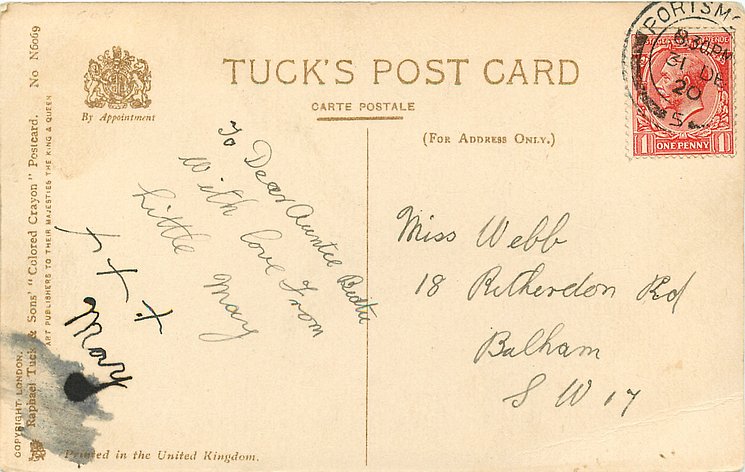 TUCK'S POST CARD
CARTE POSTALE
(FOR ADDRESS ONLY.)
By Appointment
PORTSMO
8.30PM
31 DE
20
5
ONE PENNY
1 1
To Dear Auntie
With love From
Little May
x x x
May
Miss Webb
18 Ritherdon Rd
Balham
S W 17
COPYRIGHT LONDON.
Raphael Tuck & Sons' "Colored Crayon" Postcard. No N6069
ART PUBLISHERS TO THEIR MAJESTIES THE KING & QUEEN
Printed in the United Kingdom.